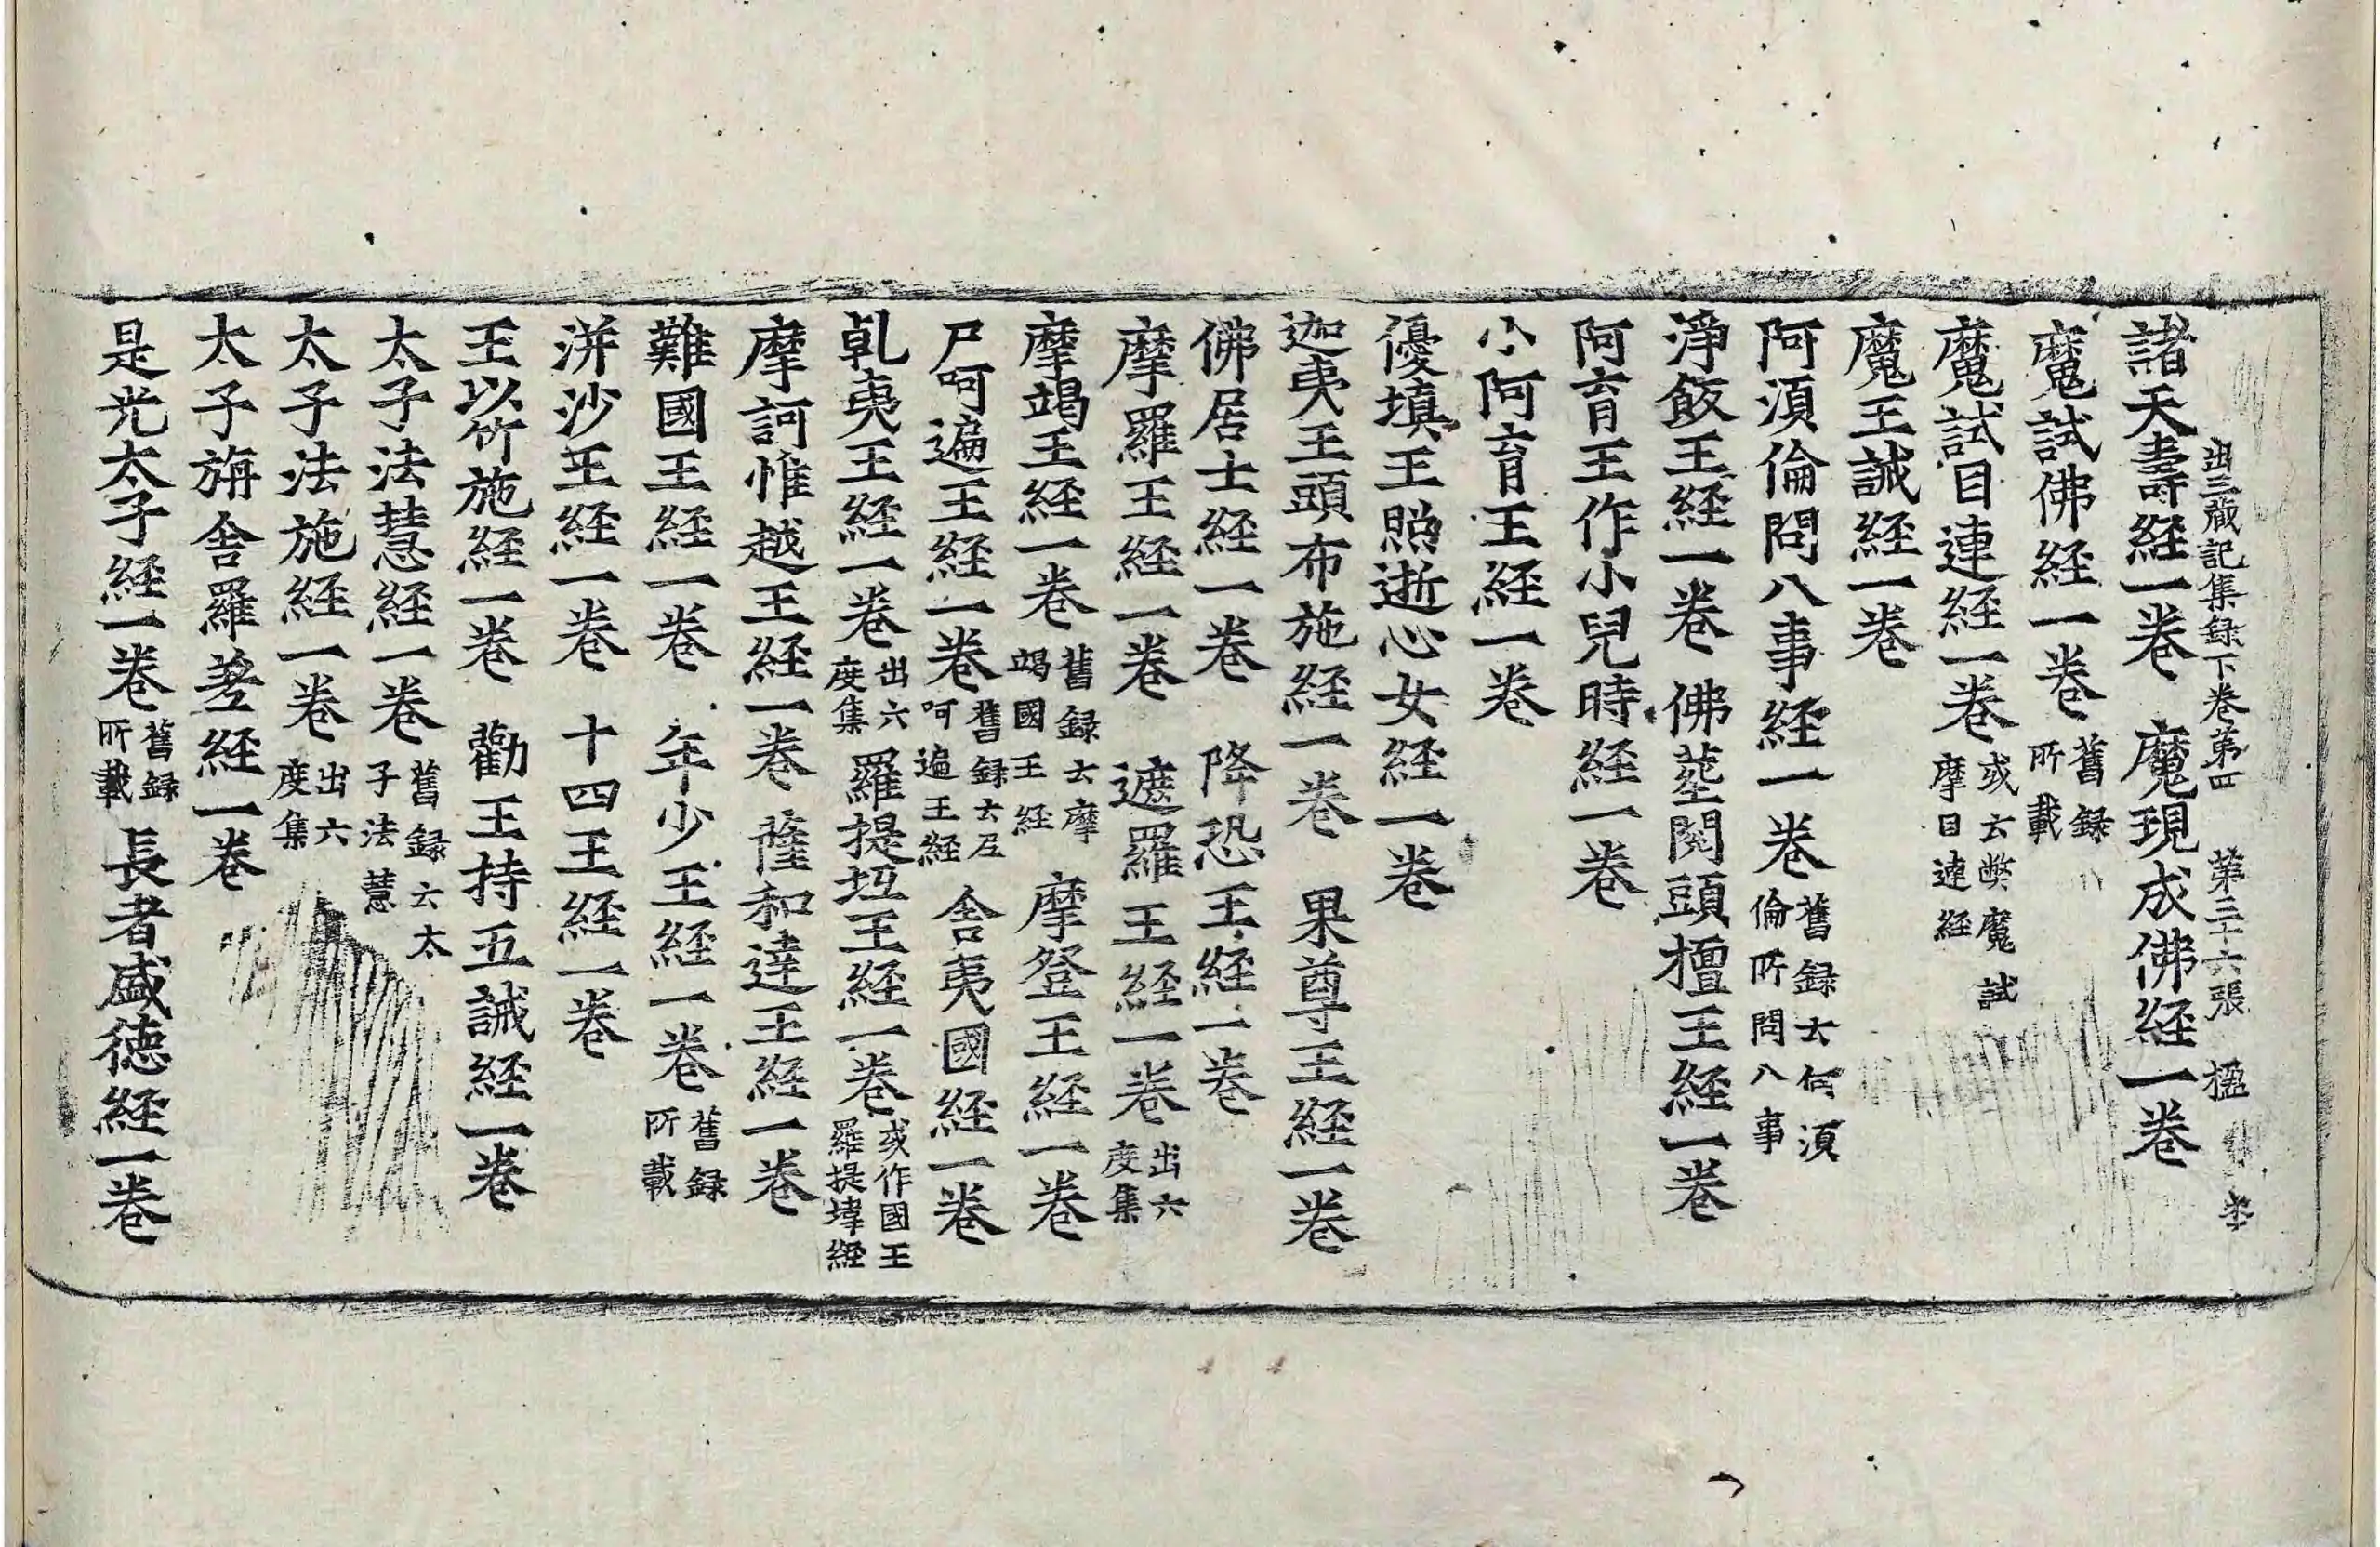 出三藏記集録下卷第四 第三十六張 楹
諸天壽経一卷 魔現成佛経一卷
魔試佛経一卷舊録所載
魔試目連経一卷或云弊魔試摩目連経
魔王誡経一卷
阿湏倫問八事経一卷舊録云何湏倫所問八事
淨飯王経一卷 佛葬閱頭檀王経一卷
阿育王作小兒時経一卷
小阿育王経一卷
優填王照逝心女経一卷
迦夷王頭布施経一卷 果尊王経一卷
佛居士経一卷 降恐王経一卷
摩羅王経一卷 遮羅王経一卷出六度集
摩竭王経一卷舊録云摩竭國王経 摩登王経一卷
尸呵遍王経一卷舊録云尸呵遍王経 舍夷國経一卷
乹夷王経一卷出六度集 羅提坻王経一卷或作國王羅提㙔経
摩訶惟越王経一卷 薩和達王経一卷
難國王経一卷 年少王経一卷舊録所載
洴沙王経一卷 十四王経一卷
王以竹施経一卷 勸王持五誡経一卷
太子法慧経一卷舊録云太子法慧
太子法施経一卷出六度集
太子旃舍羅経一卷
是光太子経一卷舊録所載 長者盛德経一卷